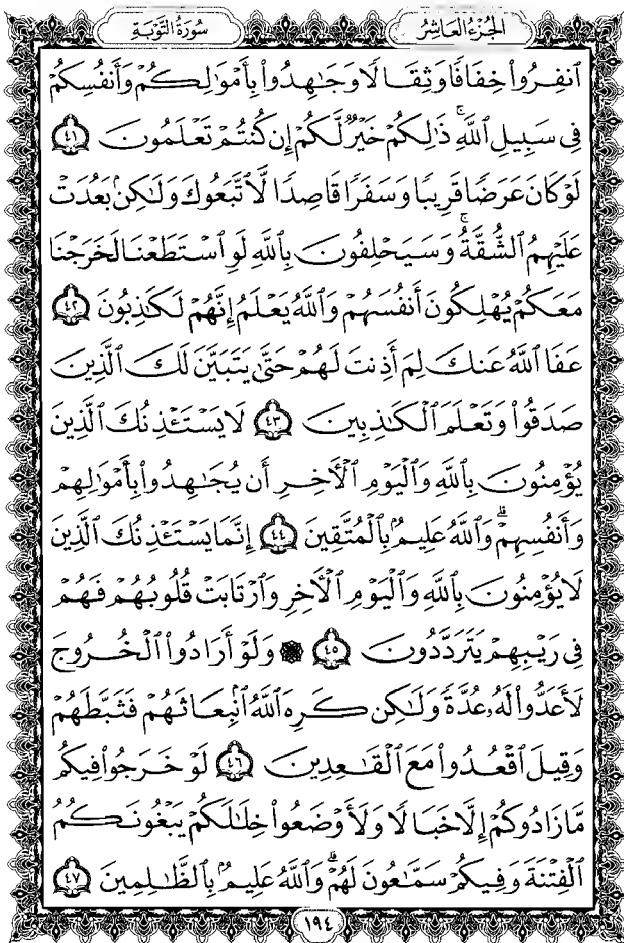 الجُزْءُ العَاشِرُ سُورَةُ التَّوْبَةِ
ٱنفِرُواْ خِفَافٗا وَثِقَالٗا وَجَٰهِدُواْ بِأَمۡوَٰلِكُمۡ وَأَنفُسِكُمۡ
فِي سَبِيلِ ٱللَّهِۚ ذَٰلِكُمۡ خَيۡرٞ لَّكُمۡ إِن كُنتُمۡ تَعۡلَمُونَ ٤١
لَوۡ كَانَ عَرَضٗا قَرِيبٗا وَسَفَرٗا قَاصِدٗا لَّٱتَّبَعُوكَ وَلَٰكِنۢ بَعُدَتۡ
عَلَيۡهِمُ ٱلشُّقَّةُۚ وَسَيَحۡلِفُونَ بِٱللَّهِ لَوِ ٱسۡتَطَعۡنَا لَخَرَجۡنَا
مَعَكُمۡ يُهۡلِكُونَ أَنفُسَهُمۡ وَٱللَّهُ يَعۡلَمُ إِنَّهُمۡ لَكَٰذِبُونَ ٤٢
عَفَا ٱللَّهُ عَنكَ لِمَ أَذِنتَ لَهُمۡ حَتَّىٰ يَتَبَيَّنَ لَكَ ٱلَّذِينَ
صَدَقُواْ وَتَعۡلَمَ ٱلۡكَٰذِبِينَ ٤٣ لَا يَسۡتَـٔۡذِنُكَ ٱلَّذِينَ
يُؤۡمِنُونَ بِٱللَّهِ وَٱلۡيَوۡمِ ٱلۡأٓخِرِ أَن يُجَٰهِدُواْ بِأَمۡوَٰلِهِمۡ
وَأَنفُسِهِمۡۗ وَٱللَّهُ عَلِيمُۢ بِٱلۡمُتَّقِينَ ٤٤ إِنَّمَا يَسۡتَـٔۡذِنُكَ ٱلَّذِينَ
لَا يُؤۡمِنُونَ بِٱللَّهِ وَٱلۡيَوۡمِ ٱلۡأٓخِرِ وَٱرۡتَابَتۡ قُلُوبُهُمۡ فَهُمۡ
فِي رَيۡبِهِمۡ يَتَرَدَّدُونَ ٤٥ ۞ وَلَوۡ أَرَادُواْ ٱلۡخُرُوجَ
لَأَعَدُّواْ لَهُۥ عُدَّةٗ وَلَٰكِن كَرِهَ ٱللَّهُ ٱنۢبِعَاثَهُمۡ فَثَبَّطَهُمۡ
وَقِيلَ ٱقۡعُدُواْ مَعَ ٱلۡقَٰعِدِينَ ٤٦ لَوۡ خَرَجُواْ فِيكُم
مَّا زَادُوكُمۡ إِلَّا خَبَالٗا وَلَأَوۡضَعُواْ خِلَٰلَكُمۡ يَبۡغُونَكُمُ
ٱلۡفِتۡنَةَ وَفِيكُمۡ سَمَّٰعُونَ لَهُمۡۗ وَٱللَّهُ عَلِيمُۢ بِٱلظَّٰلِمِينَ ٤٧
١٩٤